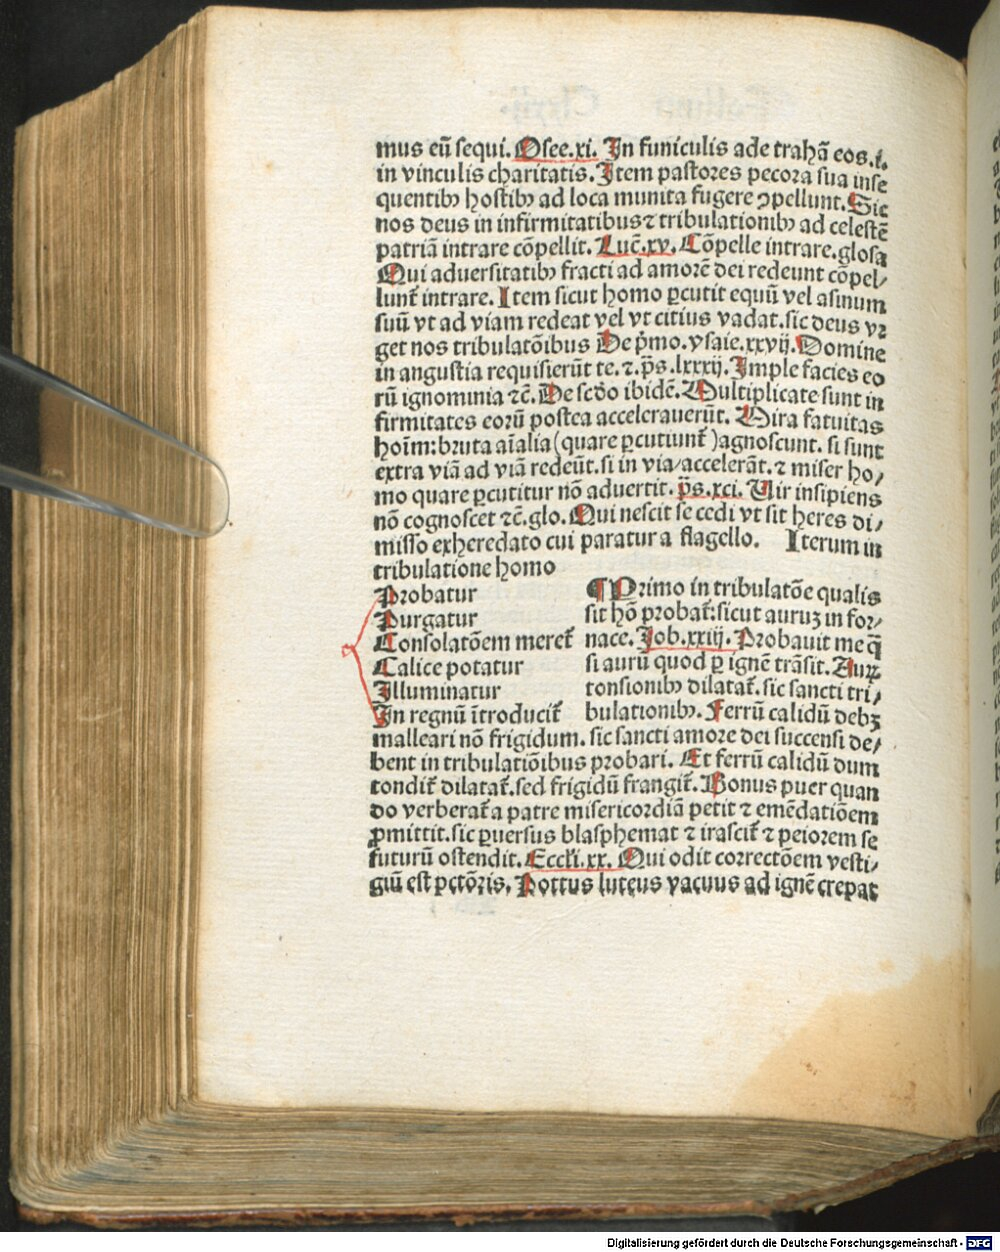 mus eū sequi. Osee.xi. In funiculis ade trahā eos.i.
in vinculis charitatis. Item pastores pecora sua inse
quentibꝫ hostibꝫ ad loca munita fugere ꝯpellunt. Sic
nos deus in infirmitatibus ⁊ tribulationibꝫ ad celestē
patriā intrare cōpellit. Luc̄.xv. Cōpelle intrare. glosa
Qui aduersitatibꝫ fracti ad amorē dei redeunt cōpel/
lunt̄ intrare. Item sicut homo ꝑcutit equū vel asinum
suū vt ad viam redeat vel vt citius vadat. sic deus vr
get nos tribulatōibus De p̄mo. ysaie.xxvij. Domine
in angustia requisierūt te. ⁊. p̄s.lxxxij. Imple facies eo
rū ignominia ⁊c̄. De scd̄o ibidē. Multiplicate sunt in
firmitates eorū postea accelerauerūt. Mira fatuitas
hoīm: bruta aīalia (quare ꝑcutiunt̄) agnoscunt. si sunt
extra viā ad viā redeūt. si in via/accelerāt. ⁊ miser ho/
mo quare ꝑcutitur nō aduertit. p̄s.xci. Vir insipiens
nō cognoscet ⁊c̄. glo. Qui nescit se cedi vt sit heres di/
misso exheredato cui paratur a flagello. Iterum in
tribulatione homo
Probatur
Purgatur
Consolatōem meret̄
Calice potatur
Illuminatur
In regnū ītroducit̄
¶ Primo in tribulatōe qualis
sit hō probat̄: sicut auruꝫ in for/
nace. Job.xxiij. Probauit me q̄
si aurū quod ꝑ ignē trāsit. Auꝝ
tonsionibꝫ dilatat̄. sic sancti tri/
bulationibꝫ. Ferrū calidū debꝫ
malleari nō frigidum. sic sancti amore dei succensi de/
bent in tribulatiōibus probari. Et ferrū calidū dum
tondit̄ dilatat̄. sed frigidū frangit̄. Bonus puer quan
do verberat̄ a patre misericordiā petit ⁊ emēdatiōem
ꝓmittit. sic ꝑuersus blasphemat ⁊ irascit̄ ⁊ peiorem se
futurū ostendit. Eccli.xx. Qui odit correctōem vesti/
giū est pctōris. Pottus luteus vacuus ad ignē crepat
Digitalisierung gefördert durch die Deutsche Forschungsgemeinschaft - DFG